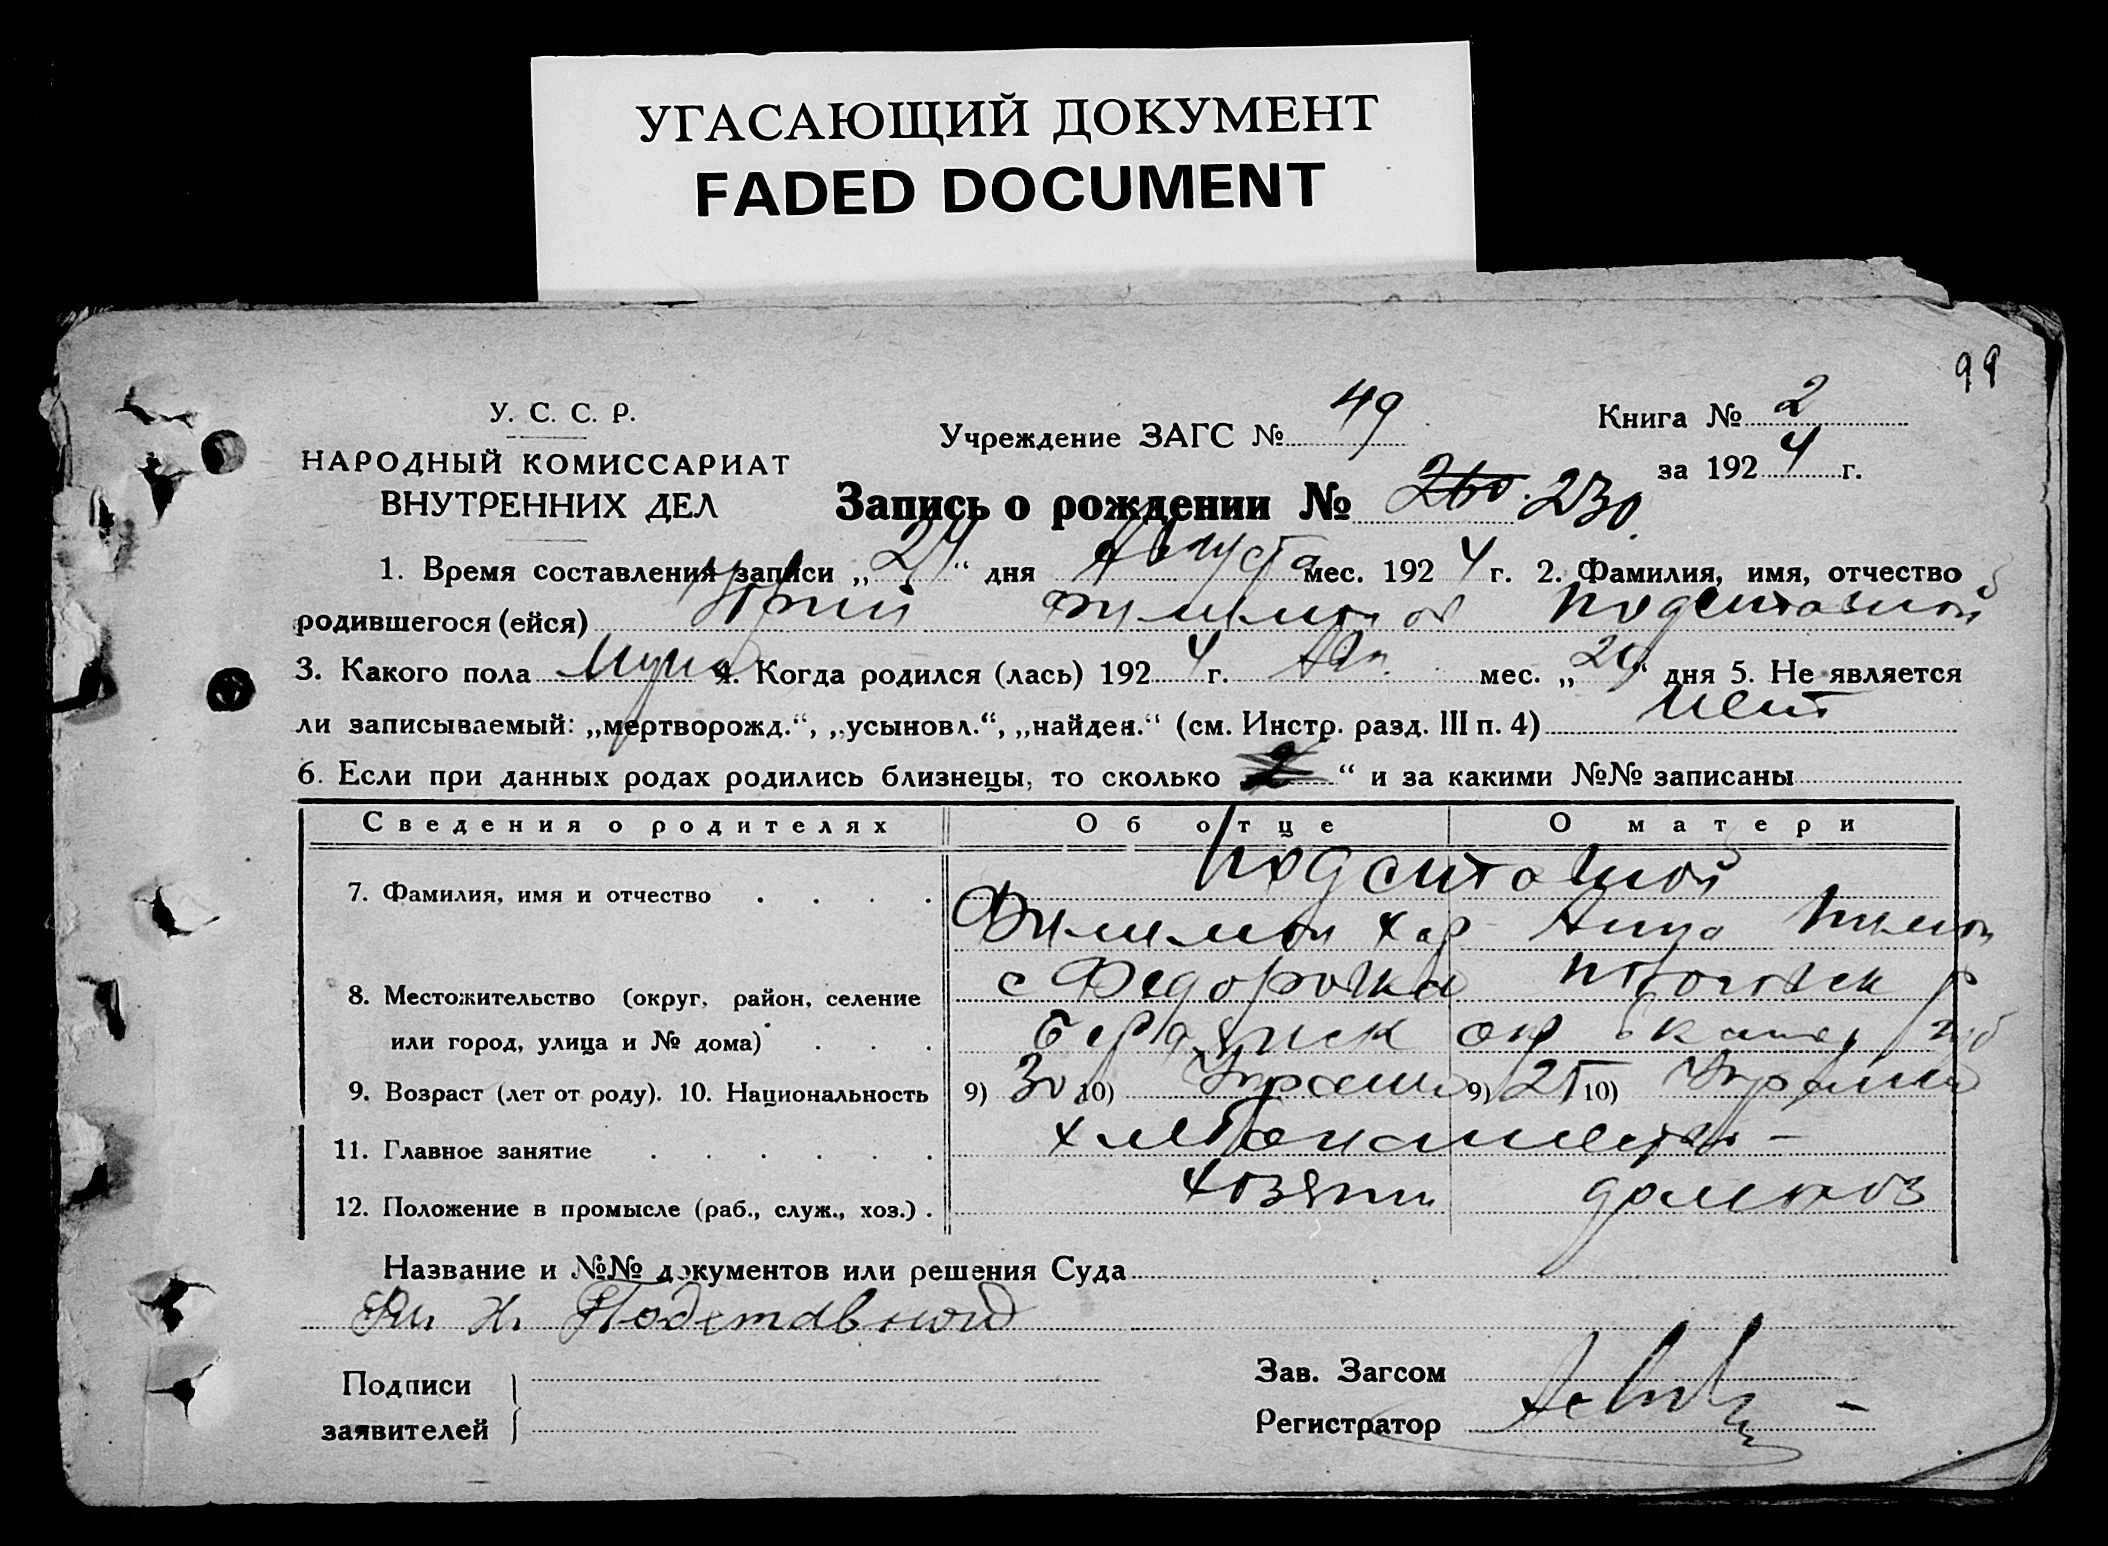 УГАСАЮЩИЙ ДОКУМЕНТ
FADED DOCUMENT
99
У. С. С. Р.
НАРОДНЫЙ КОМИССАРИАТ
ВНУТРЕННИХ ДЕЛ
Учреждение ЗАГС № 49
Книга № 2
за 1924 г.
Запись о рождении № 260. 230
1. Время составления записи „24“ дня Августа мес. 1924 г. 2. Фамилия, имя, отчество
родившегося (ейся) Юрий Филимонов Подставной
3. Какого пола Муж 4. Когда родился (лась) 1924 г. Авг. мес. „24“ дня 5. Не является
ли записываемый: „мертворожд.“, „усыновл.“, „найден.“ (см. Инстр. разд. III п. 4) Нет
6. Если при данных родах родились близнецы, то сколько “ и за какими №№ записаны
Сведения о родителях Об отце О матери
7. Фамилия, имя и отчество Подставной
Филимон Хар Анна Пимон
8. Местожительство (округ, район, селение с Федоровка
или город, улица и № дома) Бердянск окр Екат. губ
9. Возраст (лет от роду). 10. Национальность 9) 30 10) Украин 9) 25 10) Украин
11. Главное занятие хлебопашество
12. Положение в промысле (раб., служ., хоз.) хозяин домохоз
Название и №№ документов или решения Суда
Подставной
Подписи
заявителей
Зав. Загсом
Регистратор